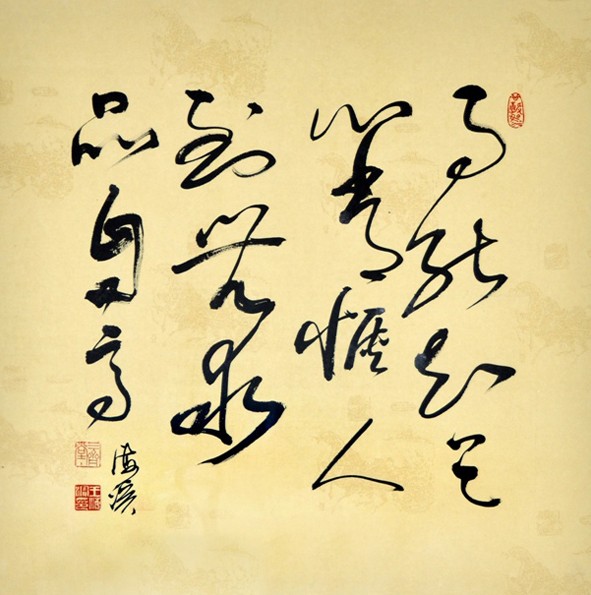 事能知足
心常惬人
到无求
品自高
海溪